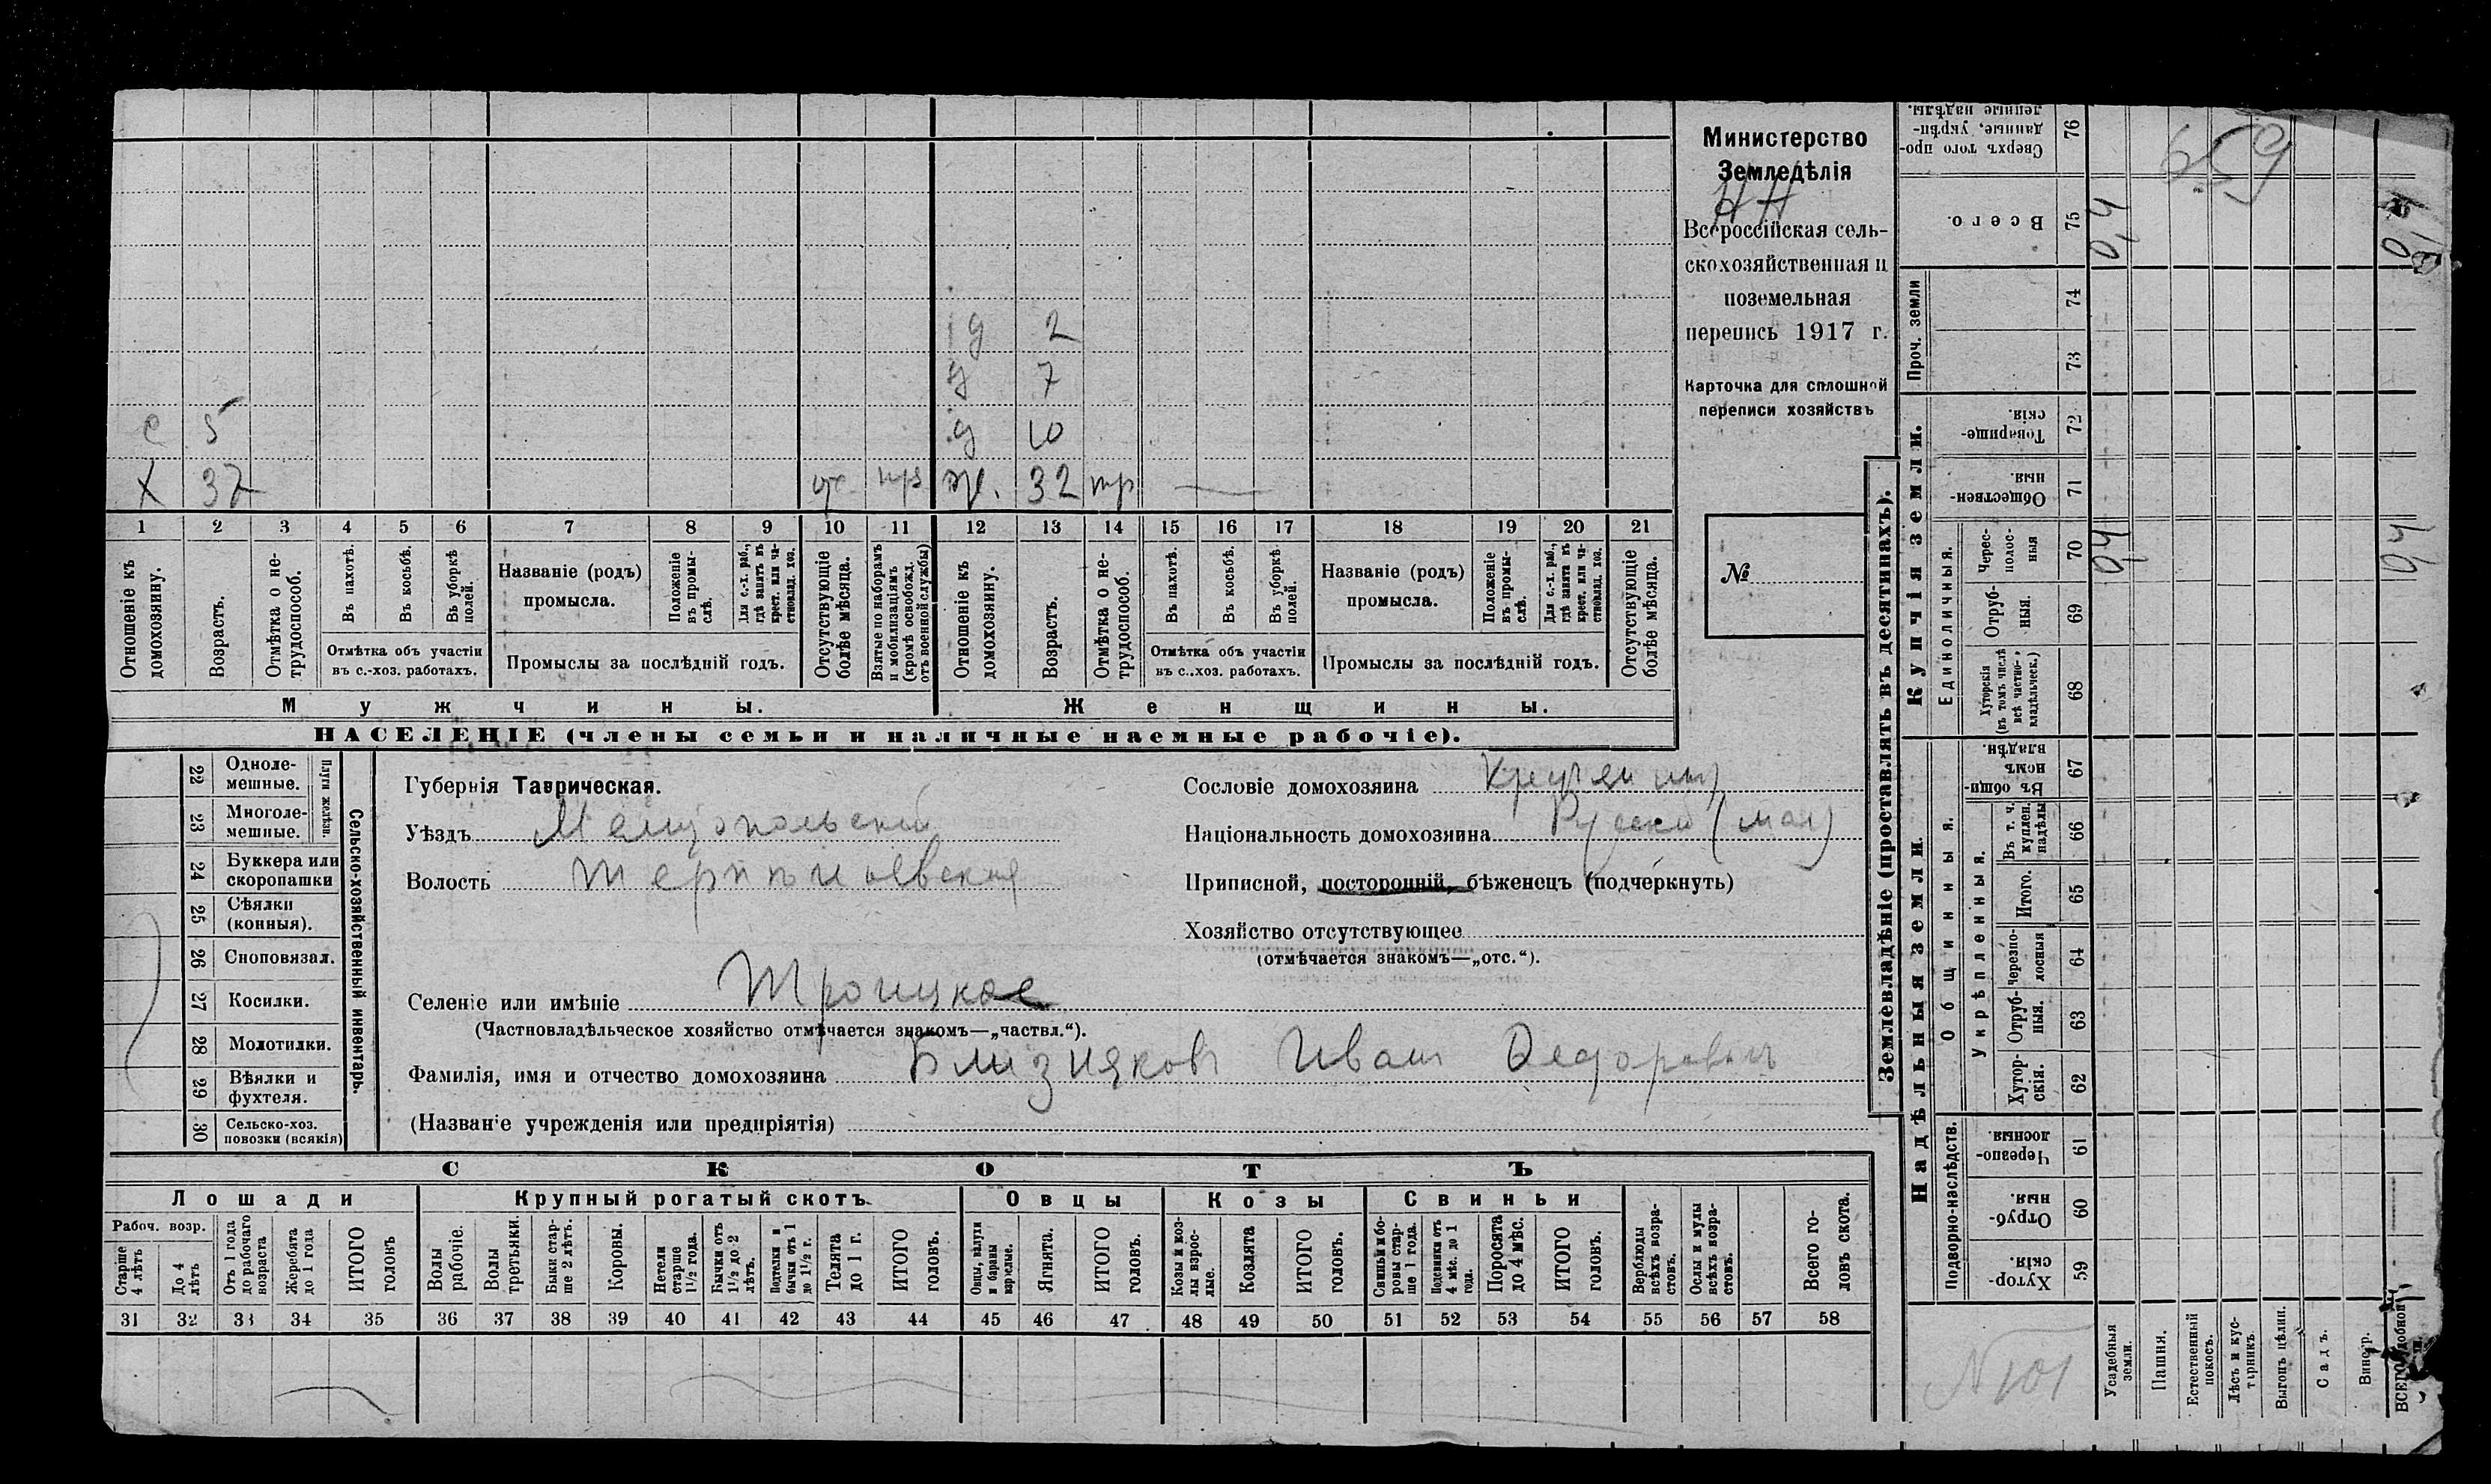 Министерство
Земледѣлія
НН
Всероссійская сель-
скохозяйственная и
поземельная
перепись 1917 г.
Карточка для сплошной
переписи хозяйствъ
№
д 2
д 7
с 5 д 10
х 37 от. ж. 32 тр
1 2 3 4 5 6 7 8 9 10 11 12 13 14 15 16 17 18 19 20 21
Отношеніе къ домохозяину.
Возрастъ.
Отмѣтка о не-трудоспособ.
Въ пахотѣ.
Въ косьбѣ.
Въ уборкѣ полей.
Отмѣтка объ участіи
въ с.-хоз. работахъ.
Названіе (родъ)
промысла.
Положеніе въ промы-слѣ.
Для с.-х. раб., гдѣ занятъ въ крест. или ча-стновлад. хоз.
Промыслы за послѣдній годъ.
Отсутствующіе болѣе мѣсяца.
Взятые по наборамъ и мобилизаціямъ (кромѣ освобожд. отъ военной службы)
Отношеніе къ домохозяину.
Возрастъ.
Отмѣтка о не-трудоспособ.
Въ пахотѣ.
Въ косьбѣ.
Въ уборкѣ полей.
Отмѣтка объ участіи
въ с..хоз. работахъ.
Названіе (родъ)
промысла.
Положеніе въ промы-слѣ.
Для с.-х. раб., гдѣ занята въ крест. или ча-стновлад. хоз.
Промыслы за послѣдній годъ.
Отсутствующіе болѣе мѣсяца.
Мужчины.
Женщины.
НАСЕЛЕНІЕ (члены семьи и наличные наемные рабочіе).
22 Одноле-мешные.
23 Многоле-мешные.
Плуги желѣзн.
24 Буккера или скоропашки
25 Сѣялки (конныя).
26 Сноповязал.
27 Косилки.
28 Молотилки.
29 Вѣялки и фухтеля.
30 Сельско-хоз. повозки (всякія)
Сельско-хозяйственный инвентарь.
Губернія Таврическая.
Уѣздъ Мелитопольскій
Волость Терпѣніевская
Селеніе или имѣніе Троицкое
(Частновладѣльческое хозяйство отмѣчается знакомъ—„частвл.“).
Фамилія, имя и отчество домохозяина Близняковъ Иванъ Федоровичъ
(Названіе учрежденія или предпріятія)
Сословіе домохозяина Крестьянинъ
Національность домохозяина Русскій (мал)
Приписной, посторонній, бѣженецъ (подчеркнуть)
Хозяйство отсутствующее
(отмѣчается знакомъ—„отс.“).
СКОТЪ
Лошади
Крупный рогатый скотъ.
Овцы
Козы
Свиньи
Рабоч. возр.
Старше 4 лѣтъ
До 4 лѣтъ
Отъ 1 года до рабочаго возраста
Жеребята до 1 года
ИТОГО головъ
Волы рабочіе.
Волы третьяки.
Быки стар-ше 2 лѣтъ.
Коровы.
Нетели старше 1½ года.
Бычки отъ 1½ до 2 лѣтъ.
Подтелки и бычки отъ 1 до 1½ г.
Телята до 1 г.
ИТОГО головъ.
Овцы, валухи и бараны взрослые.
Ягнята.
ИТОГО головъ.
Козы и коз-лы взрос-лые.
Козлята
ИТОГО головъ.
Свиньи и бо-ровы стар-ше 1 года.
Подсвинки отъ 4 мѣс. до 1 года.
Поросята до 4 мѣс.
ИТОГО головъ.
Верблюды всѣхъ возра-стовъ.
Ослы и мулы всѣхъ возра-стовъ.
Всего го-ловъ скота.
31 32 33 34 35 36 37 38 39 40 41 42 43 44 45 46 47 48 49 50 51 52 53 54 55 56 57 58
Землевладѣніе (проставлять въ десятинахъ).
Надѣльныя земли.
Купчія земли.
Проч. земли
Подворно-наслѣдств.
Общинныя.
Укрѣпленныя.
Единоличныя.
Хутор-скія. 59
Отруб-ныя 60
Черезпо-лосныя 61
Хутор-скія. 62
Отруб-ныя. 63
Черезпо-лосныя 64
Итого. 65
Въ т. ч. куплен. надѣлы 66
Въ общин-номъ владѣн. 67
Хуторскія (въ томъ числѣ всѣ частно-владѣльческ.) 68
Отруб-ныя. 69
Черес-полос-ныя 70 0,4 0,4
Обществен-ныя 71
Товарище-скія. 72
73
74
Всего. 75 0,4
Сверхъ того про-данные, укрѣп-ленные надѣлы. 76
659
N 101
Усадебныя земли.
Пашня.
Естественный покосъ.
Лѣсъ и кус-тарникъ.
Выгонъ цѣлин.
Садъ.
Виногр.